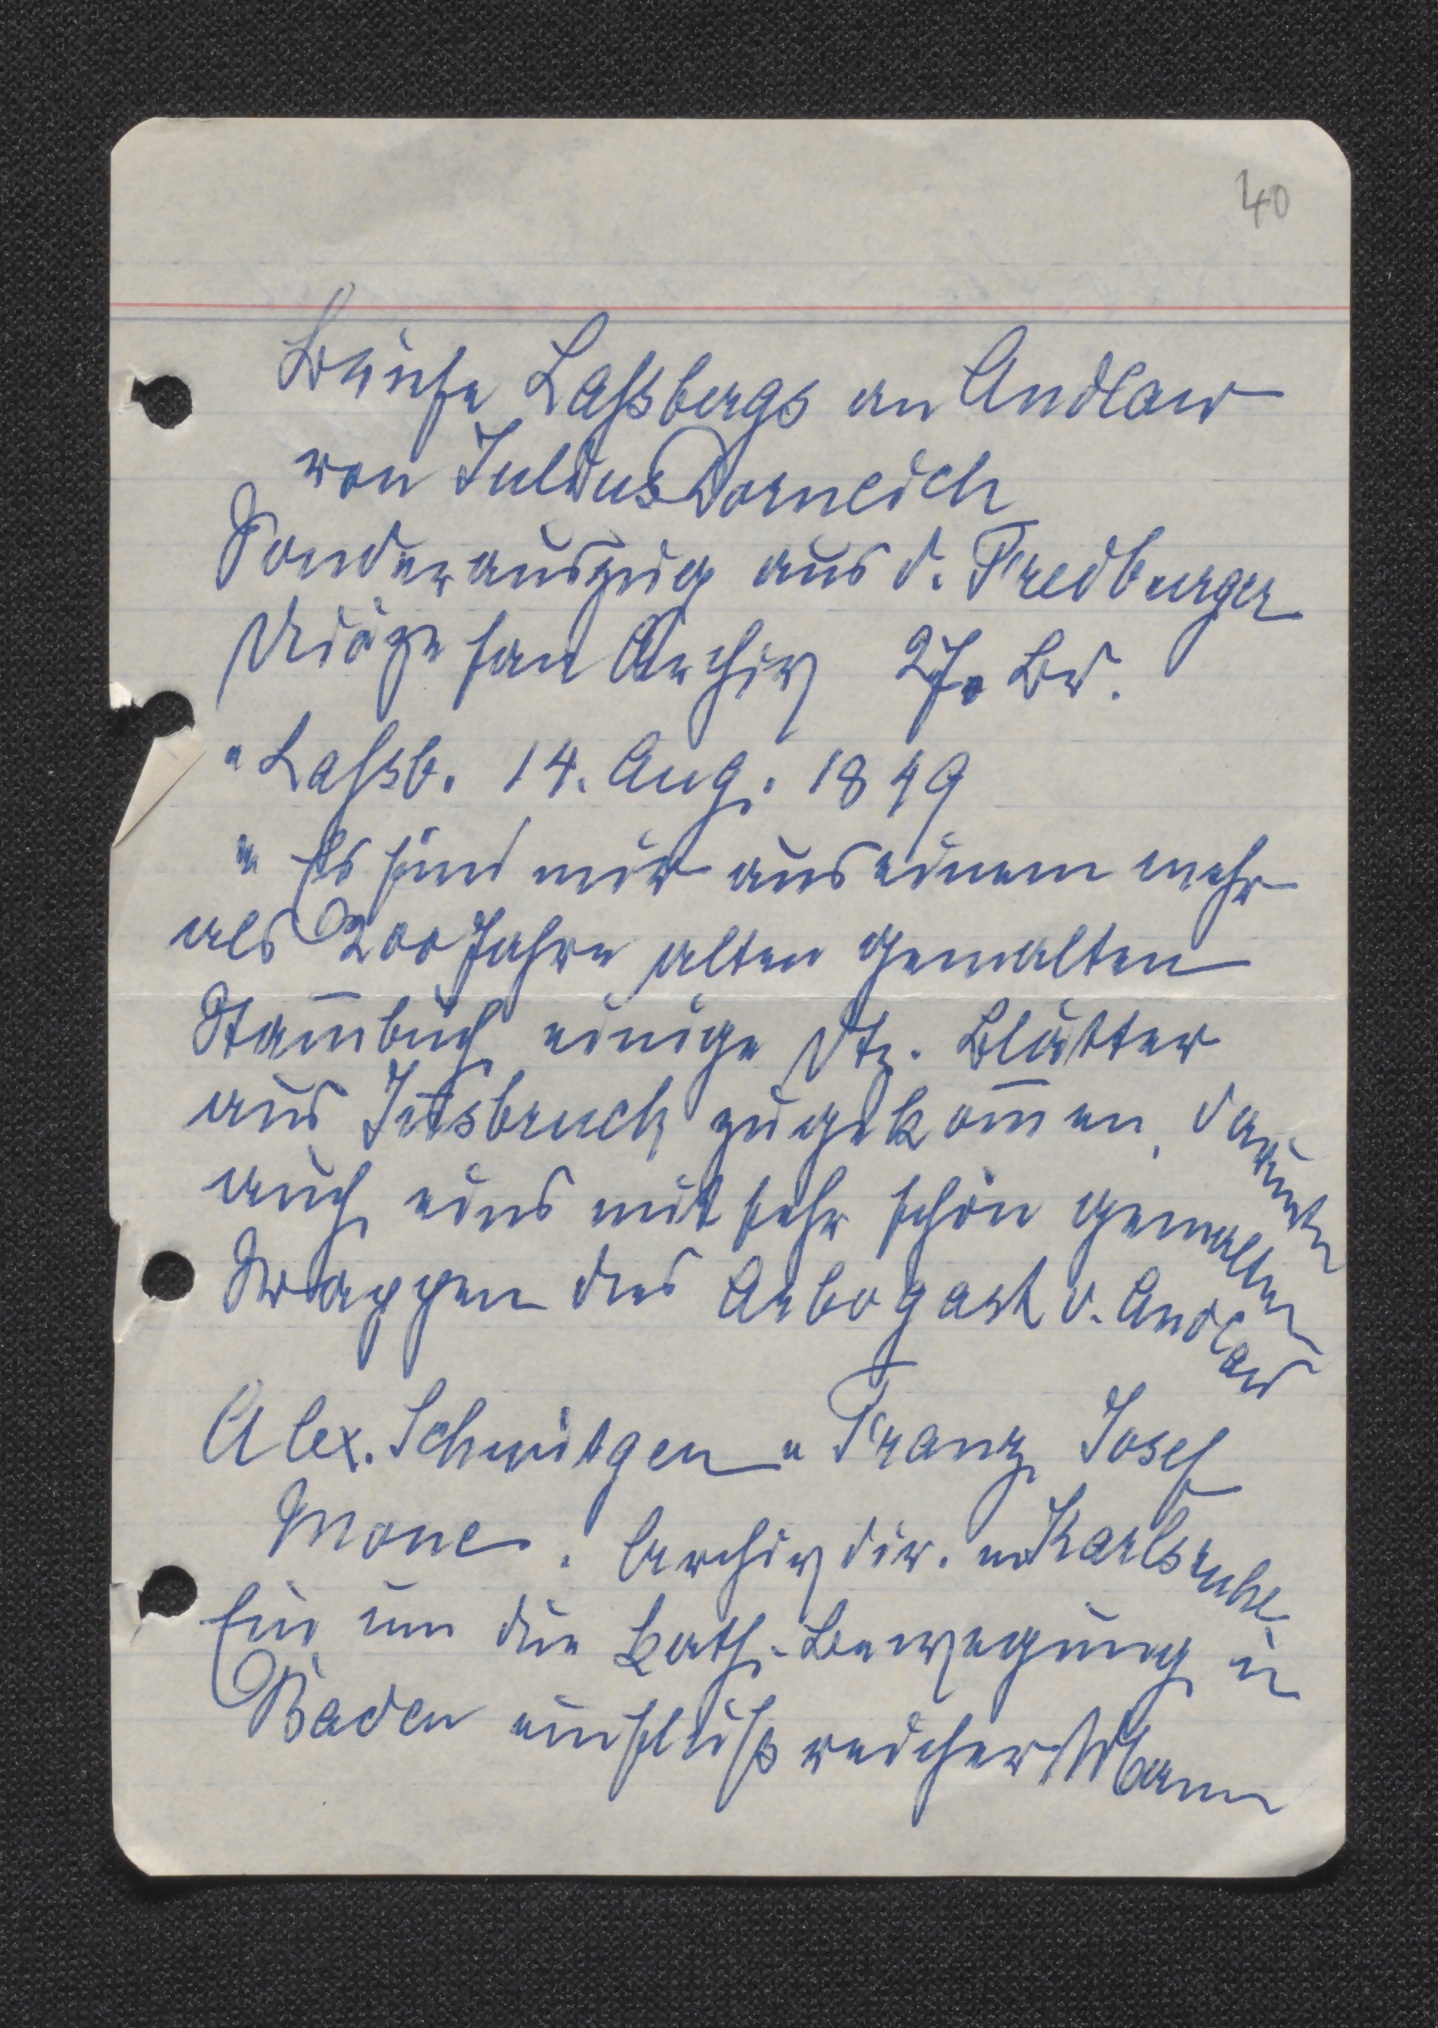 40
Briefe Laßbergs an Andlaw
von Julius Dorneich
Sonderauszug aus d. Freiburger
Diözesan Archiv 27. Bd.
" Laßb. 14. Aug. 1849
" Es sind mir aus einem mehr
als 200 Jahre alten gemalten
Stam̅buch einige Dtz. Blätter
aus Insbruck zugekom̅en, darunter
auch eins mit sehr schön gemalten
Wappen des Arbogast v. Andlaw
Alex. Schnütgen " Franz Josef
Mone. Archivdir. in Karlsruhe
Ein um die kath. Bewegung in
Baden einflußreicher Mann